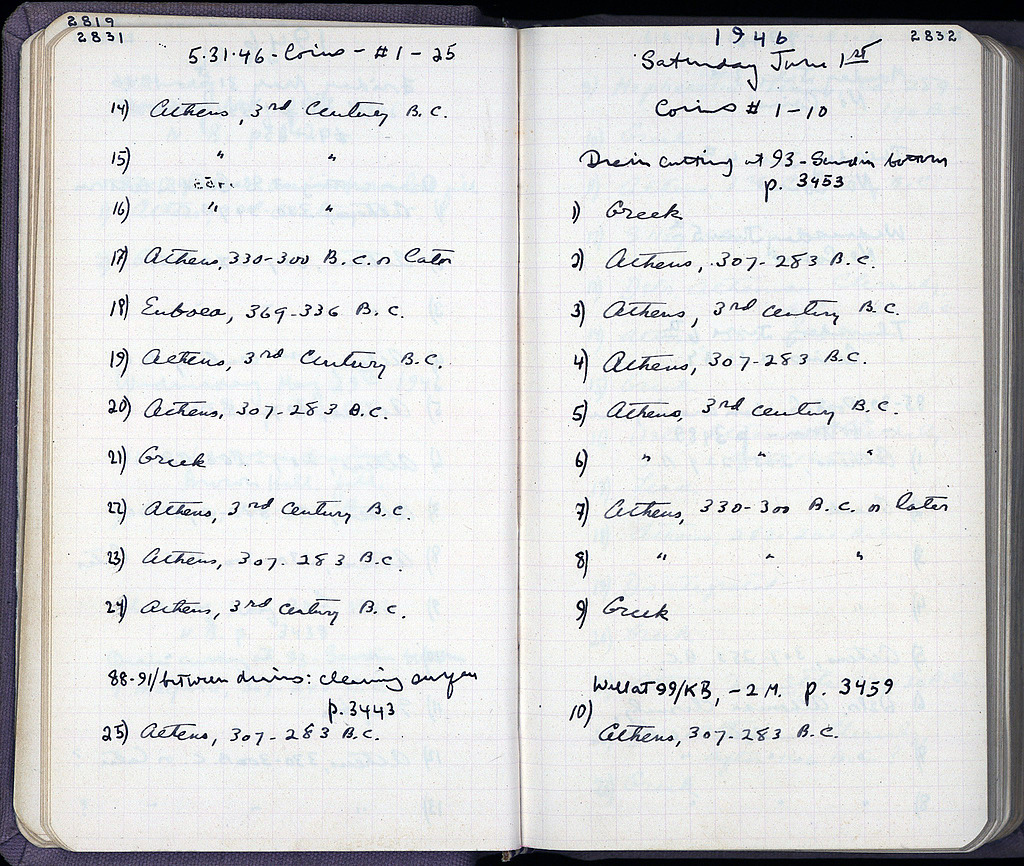 2819
2831
5.31.46. Coins - #1-25
14) Athens, 3rd Century B.C.
15) " "
16) " "
17) Athens, 330-300 B.C. or later
18) Euboea, 369-336 B.C.
19) Athens, 3rd Century B.C.
20) Athens, 307-283 B.C.
21) Greek
22) Athens, 3rd Century B.C.
23) Athens, 307-283 B.C.
24) Athens, 3rd century B.C.
88-91/ between drains: cleaning
p. 3443
25) Athens, 307-283 B.C.
2832
1946
Saturday June 1st
Coins # 1-10
Drain cutting at 93 - Sandin bottom
p. 3453
1) Greek
2) Athens, 307-283 B.C.
3) Athens, 3rd century B.C.
4) Athens, 307-283 B.C.
5) Athens, 3rd century B.C.
6) " " "
7) Athens, 330-300 B.C. or later
8) " " "
9) Greek
Well at 99/KB, -2 M. p. 3459
10)
Athens, 307-283 B.C.